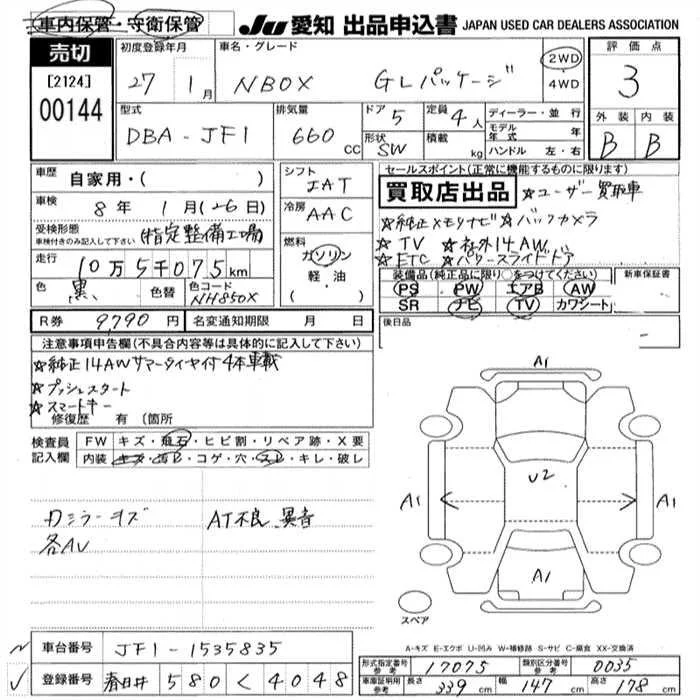 車内保管・守衛保管
JU 愛知 出品申込書 JAPAN USED CAR DEALERS ASSOCIATION
売切
[2124]
00144
初度登録年月
27 1月
車名・グレード
NBOX GLパッケージ
2WD
4WD
評価点
3
型式
DBA-JF1
排気量
660 cc
ドア 5
定員 4人
形状 SW
積載 kg
ディーラー・並行
モデル年式 年
ハンドル 左・右
外装 内装
B B
車歴 自家用・( )
車検 8年 1月(26日)
受検形態
車検付きのみ記入して下さい (指定整備工場)
走行 10万5千075km
色 黒 色替 色コード NH850X
シフト
IAT
冷房
AAC
燃料
ガソリン
軽・油
( )
セールスポイント(正常に機能するものに限ります)
買取店出品 ☆ユーザー買取車
☆純正メモリナビ☆バックカメラ
☆TV ☆社外14AW
☆ETC ☆パワースライドドア
装備品(純正品に限り○をつけてください) 新車保証書
PS PW エアB AW
SR ナビ TV カワシート
R券 9,790円 名変通知期限 月 日
後日品
注意事項申告欄(不具合内容等は具体的に記入して下さい)
☆純正14AWサマータイヤ付4本車載
☆プッシュスタート
☆スマートキー
修復歴 有 (箇所
検査員記入欄
FW キズ・飛石・ヒビ割・リペア跡・X要
内装 キズ・汚レ・コゲ・穴・スレ・キレ・破レ
カミラーキズ AT不良 異音
各AU
A1
A1 U2 A1
A1
スペア
A-キズ E-エクボ U-凹み W-補修跡 S-サビ C-腐食 XX-交換済
車台番号 JF1-1535835
登録番号 春日井 580 く 4048
形式指定番号参考 17075 類別区分番号参考 0035
車庫証明用参考 長さ 339cm 幅 147cm 高さ 178cm